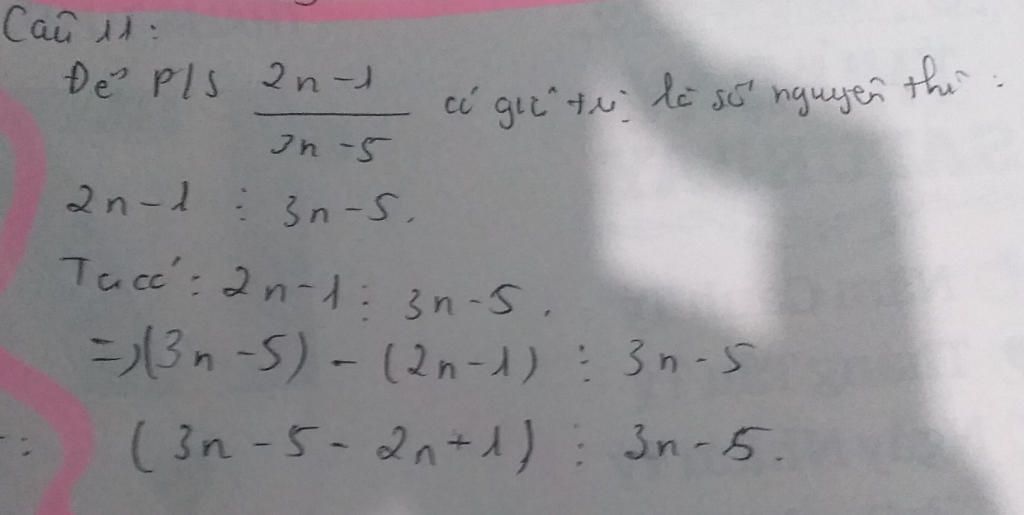 Câu 11:
Để P/S 2n-1/3n-5 có giá trị là số nguyên thì:
2n-1 ⋮ 3n-5.
Ta có: 2n-1 ⋮ 3n-5.
=> (3n-5) - (2n-1) ⋮ 3n-5
(3n-5-2n+1) ⋮ 3n-5.